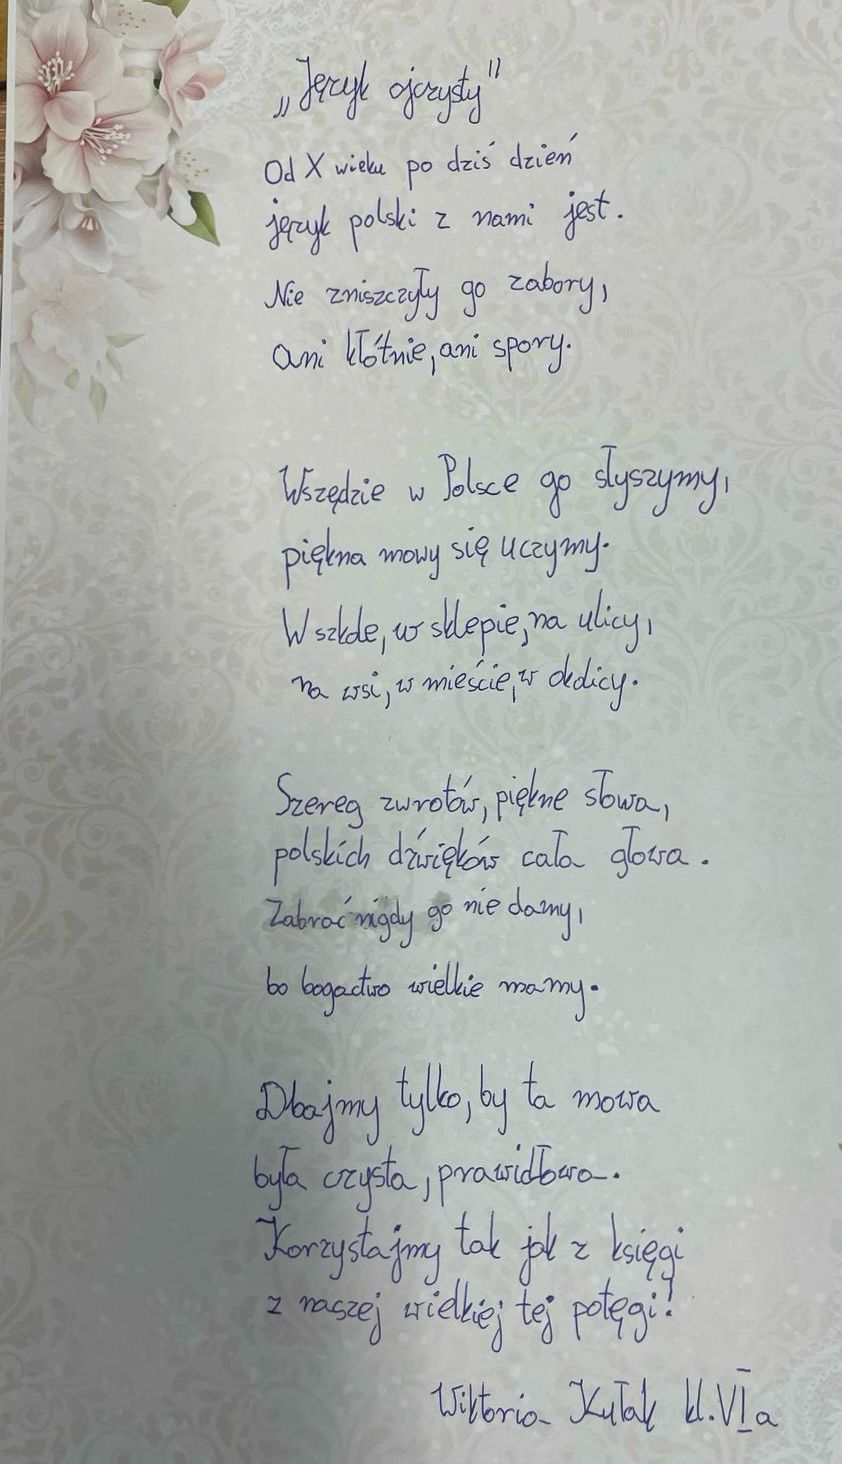 „Język ojczysty"
Od X wieku po dziś dzień
język polski z nami jest.
Nie zniszczyły go zabory,
ani kłótnie, ani spory.
Wszędzie w Polsce go słyszymy,
piękna mowy się uczymy.
W szkole, w sklepie, na ulicy,
na wsi, w mieście, w okolicy.
Szereg zwrotów, piękne słowa,
polskich dźwięków cała głowa.
Zabrać nigdy go nie damy,
bo bogactwo wielkie mamy.
Dbajmy tylko, by ta mowa
była czysta, prawidłowa.
Korzystajmy tak jak z księgi
z naszej wielkiej tej potęgi!
Wiktoria Kułak kl. VIa